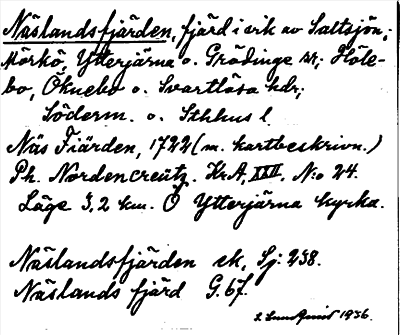 Näslandsfjärden, fjärd i vik av Saltsjön,;
Mörkö, Ytterjärna o. Grödinge sk; Höle-
bo, Öknebo o. Svartlösa hdr;
Söderm. o. Sthlms l.
Näs Fiärden, 1722 (m. kartbeskrivn.)
Ph. Nordencreutz. Kr.A, XXII. N:o 24.
Läge 3,2 km. Ö Ytterjärna kyrka.
Näslandsfjärden ek, Sj: 238.
Näslands fjärd G. 67.
Lundquist 1936.